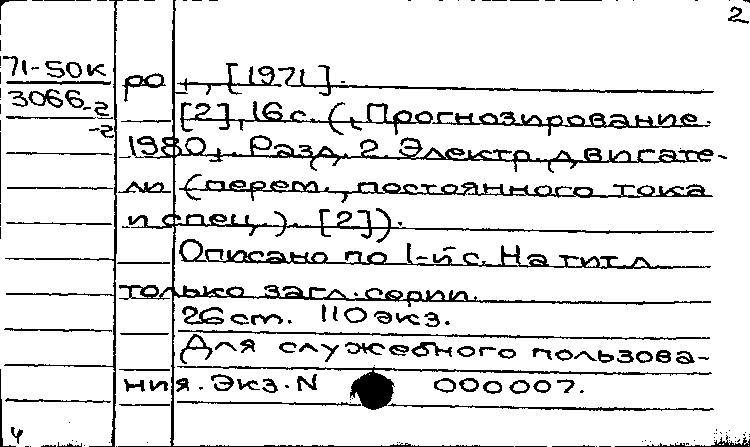 2
71-50К
3066-г
-г
ро", [1971].
[2], 16 с. („Прогнозирование.
1980". Разд. 2. Электр. двигате-
ли (перем., постоянного тока
и спец.). [2]).
Описано по 1-й с. На тит. л.
только загл. серии.
26 cm. 110 экз.
Для служебного пользова-
ния. Экз. N 000007.
4